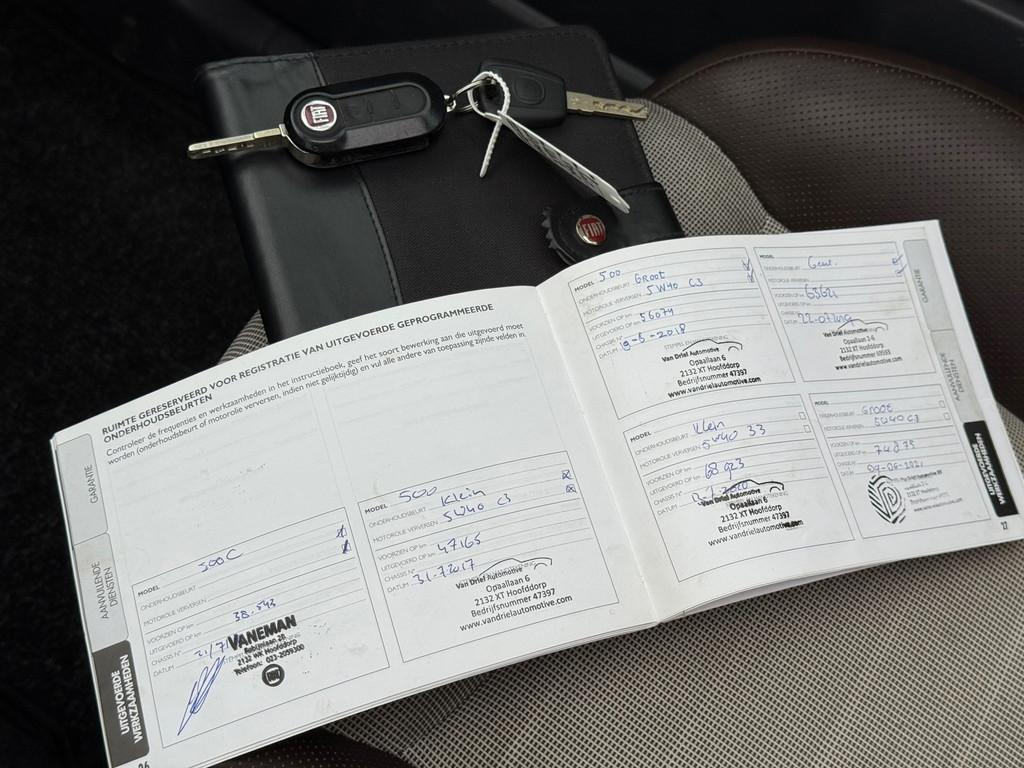 FIAT
FIAT
RUIMTE GERESERVEERD VOOR REGISTRATIE VAN UITGEVOERDE GEPROGRAMMEERDE
ONDERHOUDSBEURTEN
Controleer de frequenties en werkzaamheden in het instructieboek, geef het soort bewerking aan die uitgevoerd moet
worden (onderhoudsbeurt of motorolie verversen, indien niet gelijktijdig) en vul alle andere van toepassing zijnde velden in.
GARANTIE
AANVULLENDE
DIENSTEN
UITGEVOERDE
WERKZAAMHEDEN
26
MODEL 500C
ONDERHOUDSBEURT
MOTOROLIE VERVERSEN
VOORZIEN OP km
UITGEVOERD OP km 38.543
CHASSIS N°
DATUM 21/7/
VANEMAN
Robijnlaan 28
2132 WK Hoofddorp
Telefoon: 023-2059300
MODEL 500
ONDERHOUDSBEURT Klein
MOTOROLIE VERVERSEN 5W40 C3
VOORZIEN OP km
UITGEVOERD OP km 47165
CHASSIS N°
DATUM 31-7-2017
Van Driel Automotive
Opaallaan 6
2132 XT Hoofddorp
Bedrijfsnummer 47397
www.vandrielautomotive.com
MODEL 500
ONDERHOUDSBEURT Groot
MOTOROLIE VERVERSEN 5W40 C3
VOORZIEN OP km
UITGEVOERD OP km 56074
CHASSIS N°
DATUM 9-5-2018
Van Driel Automotive
Opaallaan 6
2132 XT Hoofddorp
Bedrijfsnummer 47397
www.vandrielautomotive.com
MODEL
ONDERHOUDSBEURT
MOTOROLIE VERVERSEN
VOORZIEN OP km
UITGEVOERD OP km
CHASSIS N°
DATUM
Van Driel Automotive
Opaallaan 1-6
2132 XT Hoofddorp
www.vandrielautomotive.com
MODEL
ONDERHOUDSBEURT Klein
MOTOROLIE VERVERSEN 5W40 33
VOORZIEN OP km
UITGEVOERD OP km 68923
CHASSIS N°
DATUM
Van Driel Automotive
Opaallaan 6
2132 XT Hoofddorp
Bedrijfsnummer 47397
www.vandrielautomotive.com
MODEL
ONDERHOUDSBEURT Groot
MOTOROLIE VERVERSEN 5W40 C3
VOORZIEN OP km
UITGEVOERD OP km 74875
CHASSIS N°
DATUM 09-06-2021
GARANTIE
AANVULLENDE
DIENSTEN
UITGEVOERDE
WERKZAAMHEDEN
27